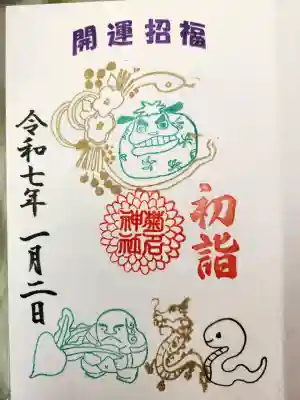 開運招福
初詣
菊石
神社
令和七年 一月二日